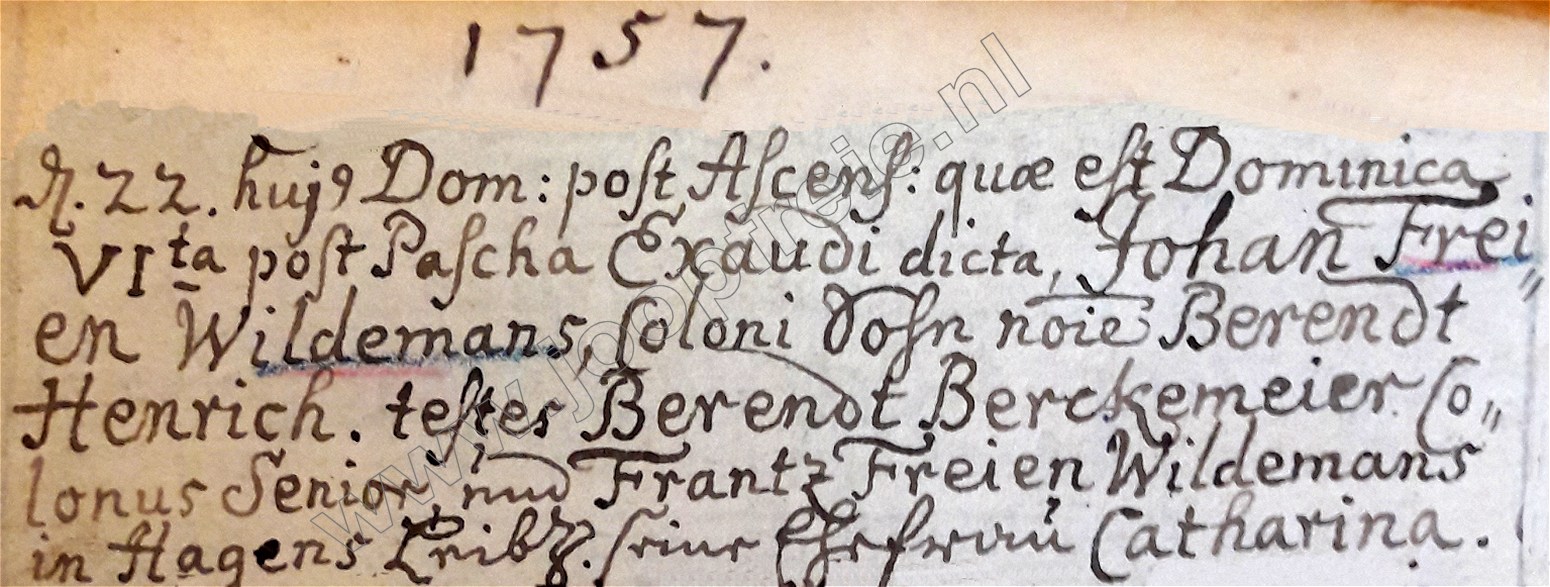 1757.
d. 22. huj9 Dom: post Ascens: quæ est Dominica
VIta post Pascha Exaudi dicta, Johan Frei„
en Wildemans, Coloni Sohn noie Berendt
Henrich. testes Berendt Berckemeier Co„
lonus Senior, und Frantz Freien Wildemans
in Hagens Leibz. seine Ehefrau Catharina.
www.jooptreie.nl